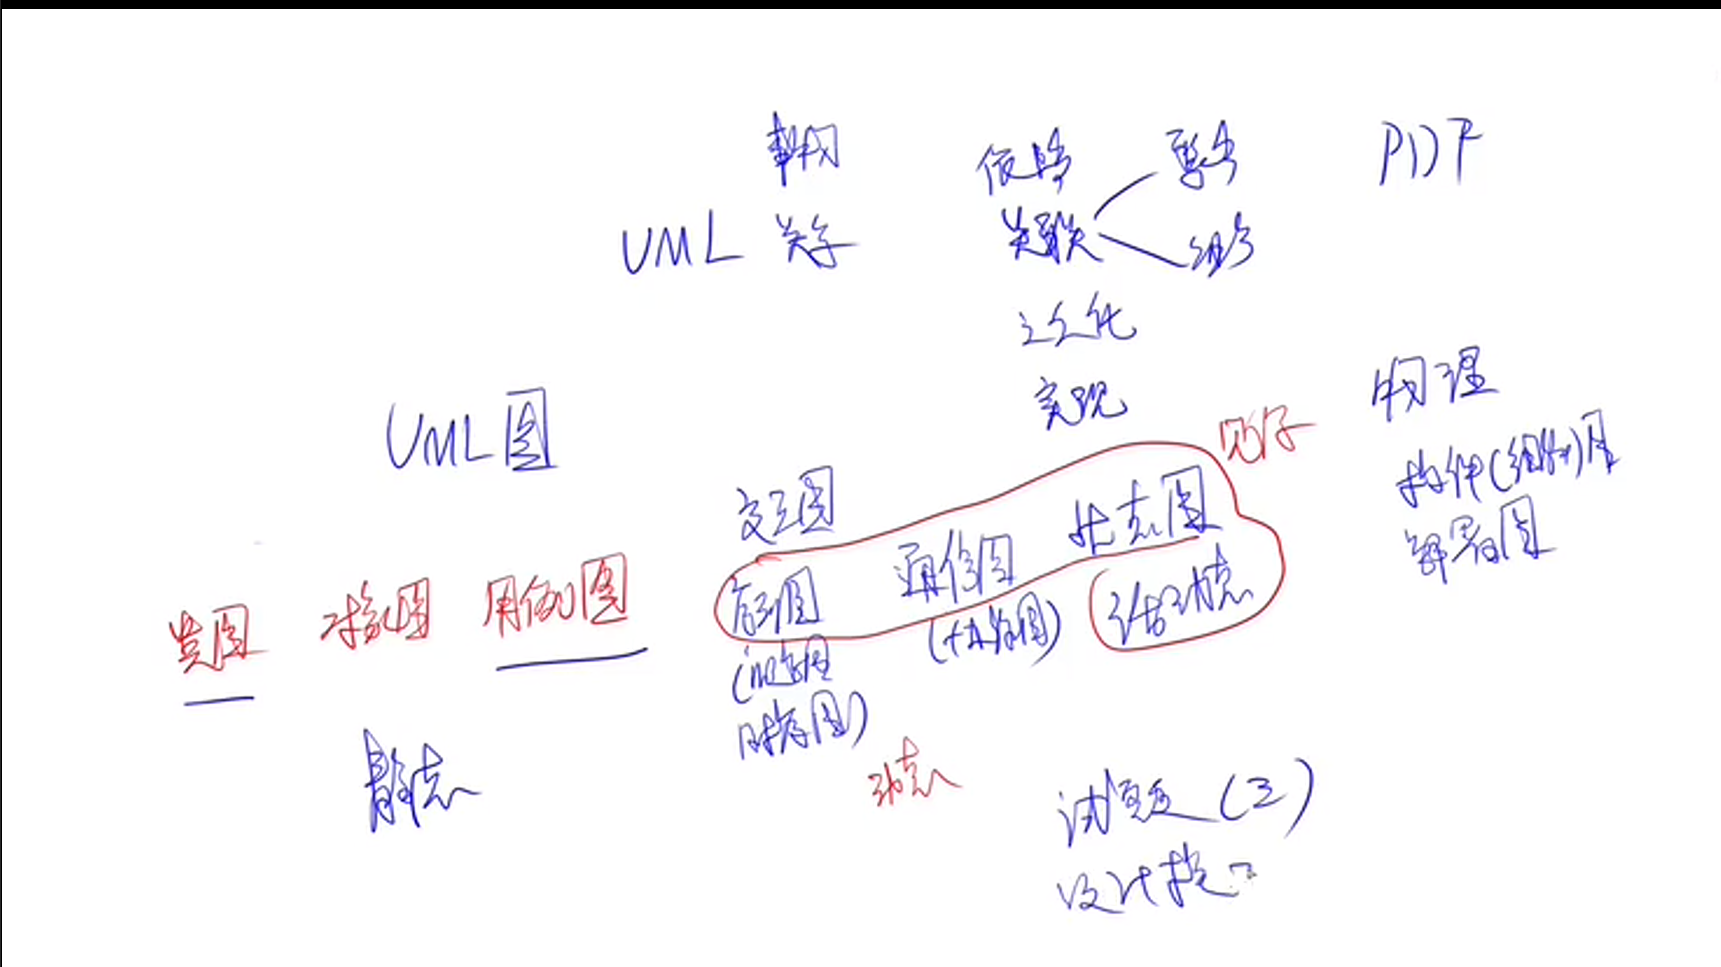 事物
依赖
聚合
PDF
UML 关系
关联
组合
泛化
实现
物理
UML图
构件(组件)图
交互图
状态图
部署图
通信图
类图
对象图
用例图
序列图
活动态
(协作图)
(顺序图
时序图)
静态
动态
试题 (三)
设计模